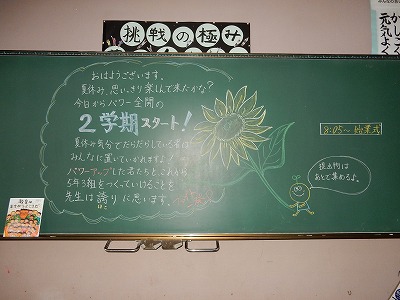 挑戦の極み
おはようございます。
夏休み、思いっきり楽しんで来たかな？
今日からパワー全開の
2学期スタート！
夏休み気分でだらだらしている者は
みんなに置いていかれますよ！
パワーアップした君たちと、これから
5年3組をつくっていけることを
先生は誇りに思います。
ほこ
8:05〜 始業式
提出物は
あとで集めるよ。
元気よく